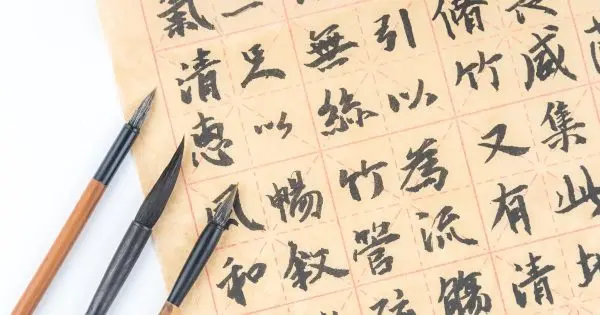 咸集此地
脩竹又有清
引以為流觴
無絲竹管
一足以暢敘
氣清惠風和